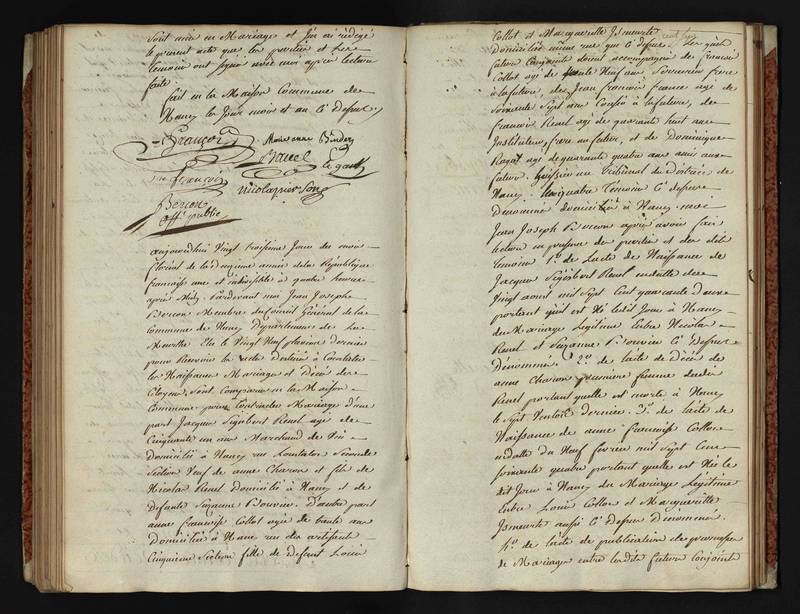 sont unis en Mariage et J'en ai rédigé
le présent acte que les parties et les
temoins ont signé avec moi après lecture
faite.
fait en la Maison Commune de
Nancy les Jour mois et an Cy Dessus
François Marie anne
Le
François Nicolas
Bercon
off. public
aujourdhui Vingt troisieme Jour du mois
floréal de la deuxieme année de la République
française une et indivisible à quatre heures
après Midy. Pardevant moi Jean Joseph
Bercon Membre du Conseil Général de la
Commune de Nancy Département de La
Meurthe Elu le Vingt Neuf pluviose dernier
pour Recevoir les acte Destinés à Constater
les Naissances Mariages et Décès des
Citoyens, sont Comparus en la Maison
Commune pour Contracter Mariage d'une
part Jacques Sigisbert Renel agé de
Cinquante un ans Marchand de Vin
Domicilié à Nancy rue Seconde
Section Veuf de anne Charon et fils de
Nicolas Renel Domicilié à Nancy et de
Defunte Suzanne Bouvier. D'autre part
anne françoise Collot agée de trente ans
Domiciliée à Nancy rue des artisans
Cinquieme Section fille de Defunt Louis
Collot et Marguerite
Domiciliée même rue que Cy dessus. Les quels
futurs Conjoints étoient accompagnés de François
Collot agé de Neuf ans frere
à la future, de Jean François france agé de
Soixante Sept ans Cousin à la future, de
François Renel agé de quarante huit ans
Instituteur, frere au futur, et de Dominique
agé de quarante quatre ans amis au
futur. huissier au Tribunal du District de
Nancy. Les quatre temoins Cy dessus
Denommés domiciliés à Nancy. moi
Jean Joseph Bercon après avoir fait
lecture en présence des parties et des dits
temoins 1º. de l'acte de Naissance de
Jacques Sigisbert Renel en datte du
Vingt aout mil Sept Cent quarante deux
portant qu'il est Né le dit Jour à Nancy
du Mariage Légitime Entre Nicolas
Renel et Suzanne Bouvier Cy Dessus
Denommés. 2º. de l'acte de Décès de
anne Charon premiere femme dudit
Renel portant quelle est morte à Nancy
le Sept Ventose dernier. 3º. de l'acte de
Naissance de anne françoise Collot
en datte du Neuf fevrier mil Sept Cent
soixante quatre portant quelle est Née le
dit Jour à Nancy du Mariage Légitime
Entre Louis Collot et Marguerite
aussi Cy Dessus Denommés.
4º. de l'acte de publication de promesses
de Mariage entre les dits futurs Conjoints